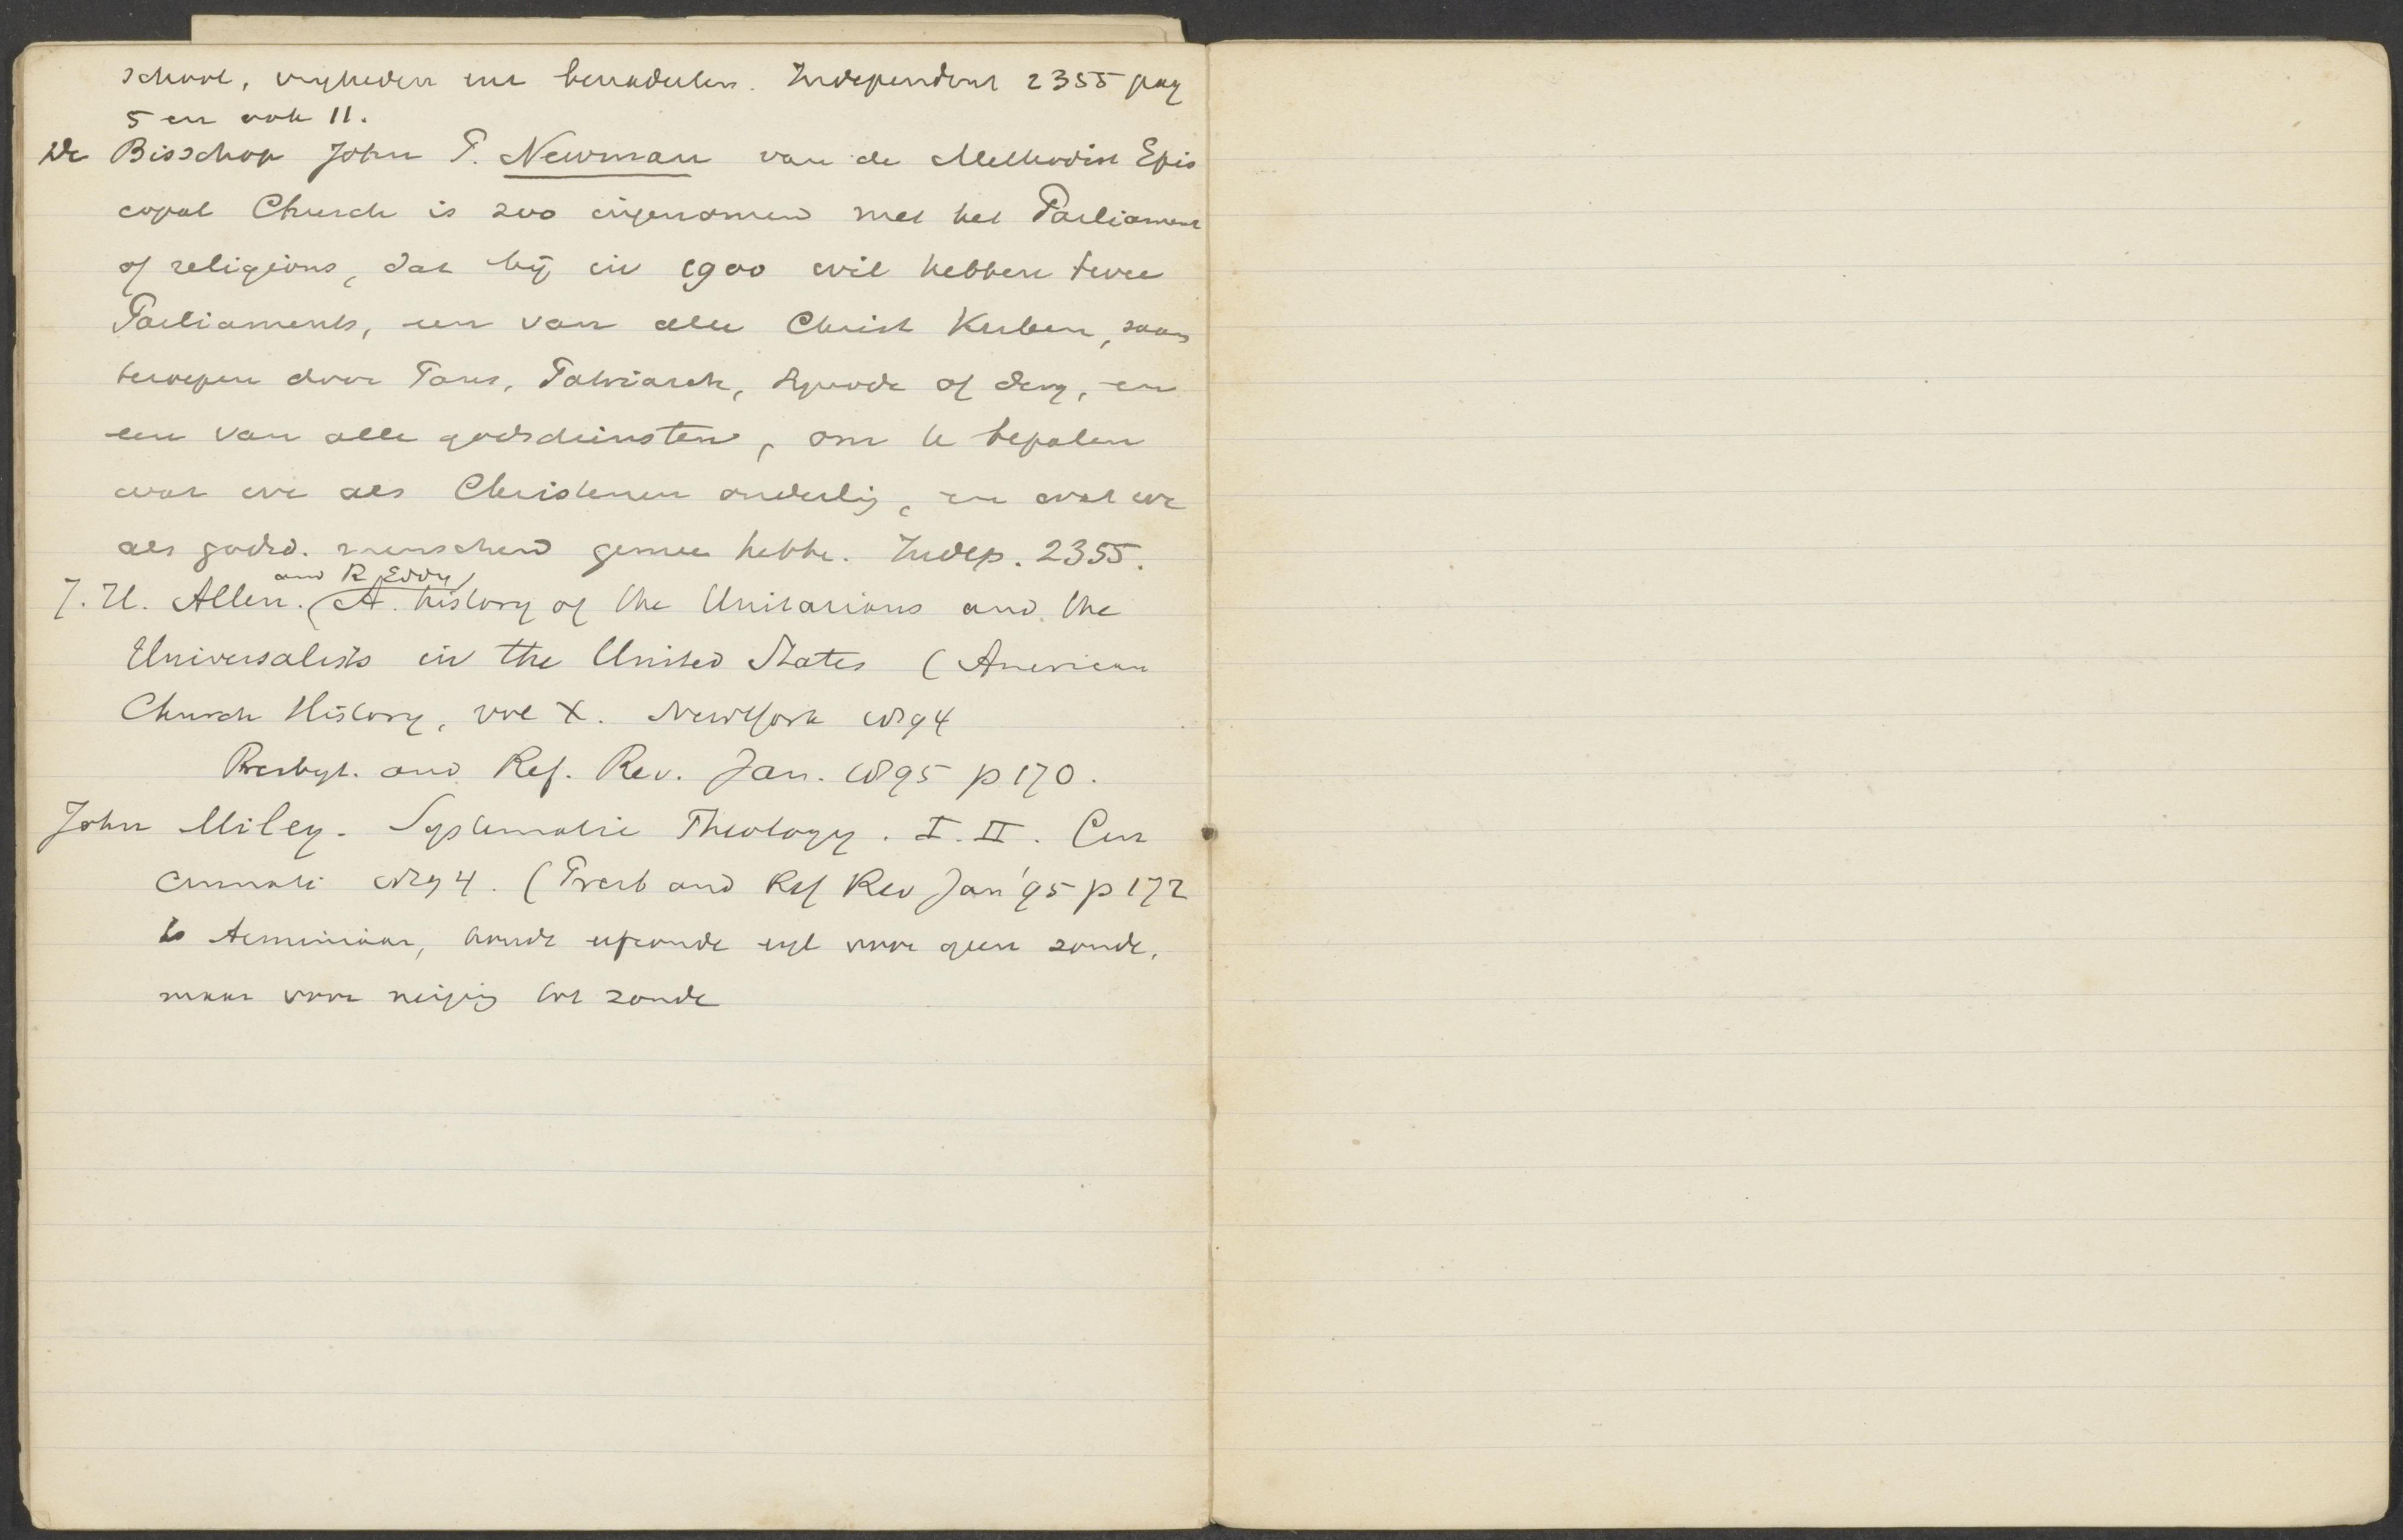 school, vryheden en benadeelen. Independent 2355 pag
5 en ook 11.
De Bisschop John P. Newman van de Methodist Epis
copal Church is zoo ingenomen met het Parliament
of religions, dat hij in 1900 wil hebben twee
Parliaments, een van alle Christ Kerken, saam
beroepen door Paus, Patriarch, Synode of derg, en
een van alle godsdiensten, om te bepalen
wat we als Christenen onderling, en wat we
als godsd. menschen gemee hebbe. Indep. 2355.
and R Eddy
J. H. Allen. A. history of the Unitarians and the
Universalists in the United States (American
Church History, vol X. New York 1894
Presbyt. and Ref. Rev. Jan. 1895 p 170.
John Miley. Systematic Theology. I. II. Cin
cinnati 1894. (Presb and Ref Rev Jan '95 p 172
Is Arminiaan, houdt erfzonde eigl voor geen zonde,
maar voor neiging tot zonde